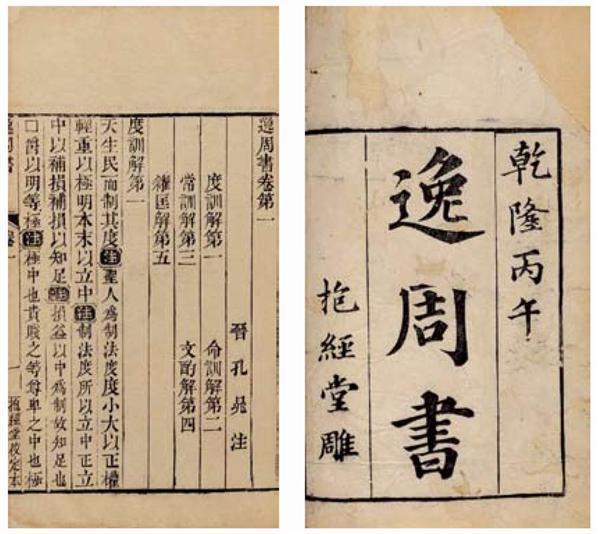 乾隆丙午
逸周書
抱經堂雕
逸周書卷第一
晉 孔晁注
度訓解第一 命訓解第二
常訓解第三 文酌解第四
糴匡解第五
度訓解第一
天生民而制其度注聖人爲制法度度小大以正權
輕重以極明本末以立中注制法度所以立中正立
中以補損補損以知足注損益以中爲制故知足也
□爵以明等極注極中也貴賤之等尊卑之中也極
逸周書 卷一 一 抱經堂校定本